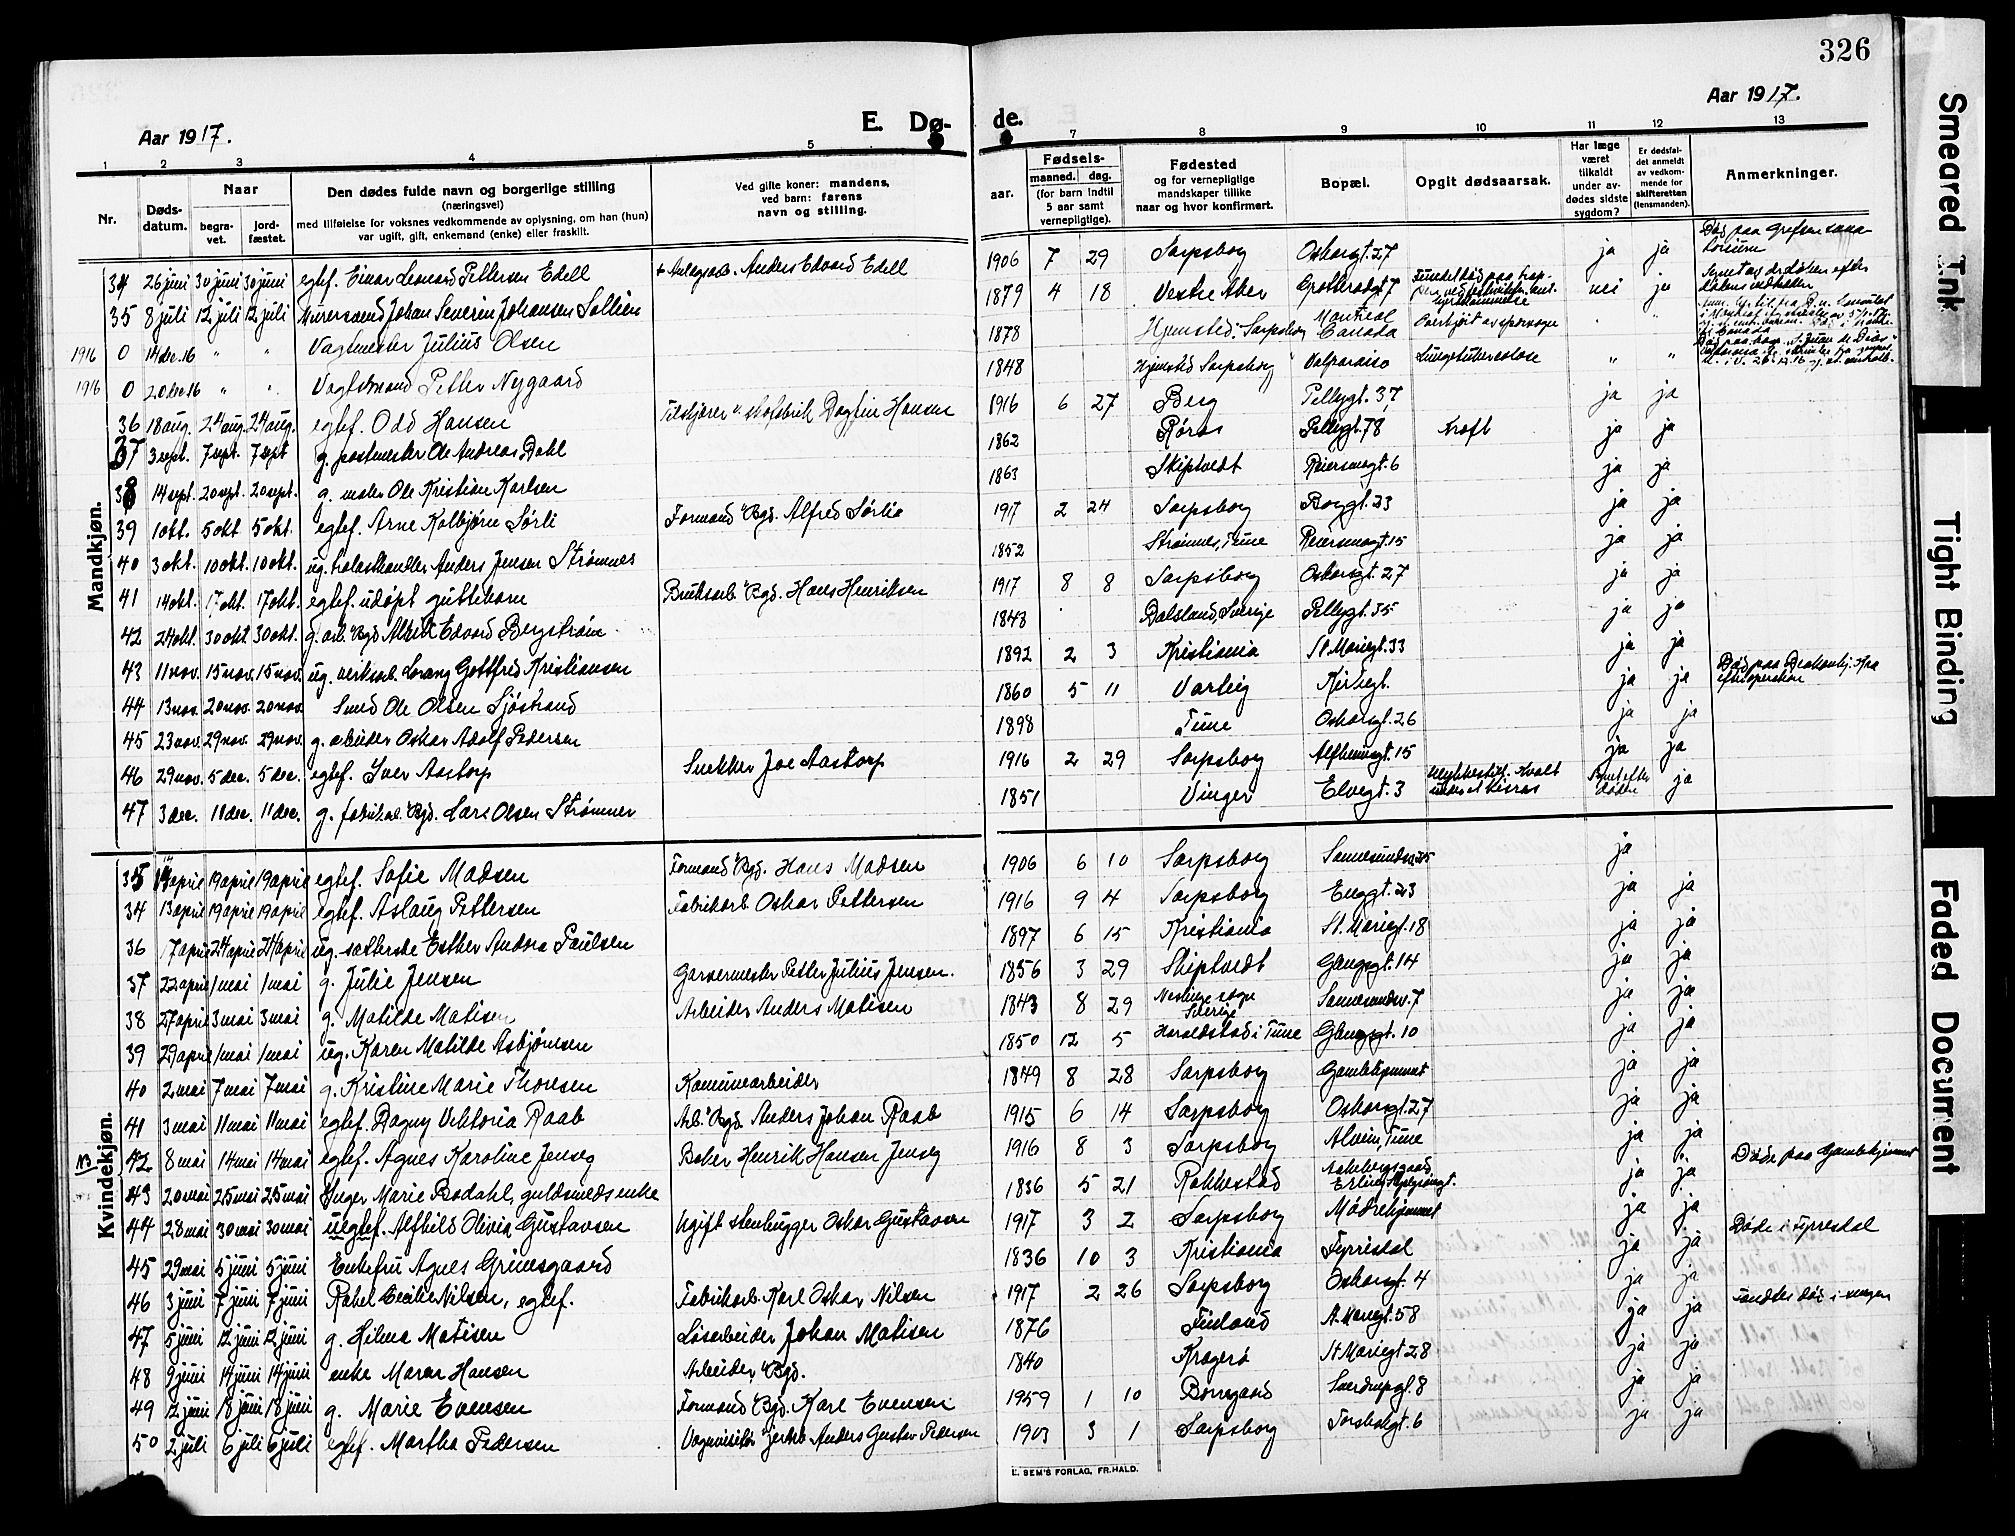 326
Aar 1917.
E. Dø-
de.
Aar 1917.
1 2 3 4 5 7 8 9 10 11 12 13
Nr.
Døds-
datum.
Naar
begra-
vet.
jord-
fæstet.
Den dødes fulde navn og borgerlige stilling
(næringsvei)
med tilføielse for voksnes vedkommende av oplysning, om han (hun)
var ugift, gift, enkemand (enke) eller fraskilt.
Ved gifte koner: mandens,
ved barn: farens
navn og stilling.
aar.
Fødsels-
maaned. dag.
(for barn indtil
5 aar samt
vernepligtige).
Fødested
og for vernepligtige
mandskaper tillike
naar og hvor konfirmert.
Bopæl.
Opgit dødsaarsak.
Har læge
været
tilkaldt
under av-
dødes sidste
sygdom?
Er dødsfal-
det anmeldt
av vedkom-
mende for
skifteretten
(lensmanden).
Anmerkninger.
Mandkjøn.
34 26 juni 30 juni 30 juni egtef. Einar Leonard Pettersen Edell Anders Edvard Edell 1906 7 29 Sarpsborg Oskarsgt. 27 ja ja Død paa Grefsen sana-
torium
35 8 juli 12 juli 12 juli Murersvend Johan Severin Johansen Sollien 1879 4 18 Vestre Aker 7 nei ja
1916 0 14 dec. 16 " " Vagtmester Julius Olsen 1878 Hjemsted: Sarpsborg Montreal
Canada " "
1916 0 20 dec 16 " " Vagtsmand Petter Nygaard 1848 Hjemsted Sarpsborg Valparaiso Lungetuberculose " "
36 18 aug. 24 aug. 24 aug. egtef. Odd Hansen Dagfin Hansen 1916 6 27 Berg Pellygt. 37 ja ja
37 3 sept. 7 sept. 7 sept g. postmester Ole Andreas Dahl 1862 Røros Pellygt. 78 Kræft ja ja
38 14 sept. 20 sept. 20 sept. g. maler Ole Kristian Karlsen 1863 Skiptvedt Reiersensgt. 6 ja ja
39 1 okt. 5 okt 5 okt. egtef. Arne Kolbjørn Sørli Formand Bgd. Alfred Sørlie 1917 2 24 Sarpsborg Borggt. 23 ja ja
40 3 okt. 10 okt. 10 okt. ug. Anders Jensen Strømnes 1852 Strømnes, Tune Reiersensgt. 15 ja ja
41 14 okt. 17 okt. 17 okt. egtef. udøpt guttebarn Bruksarb. Bgd. Hans Henriksen 1917 8 8 Sarpsborg Oskarsgt. 27 ja ja
42 24 okt. 30 okt 30 okt. g. arb. Bgd Alfred Edvard Bergstrøm 1843 Dalsland, Sverige Pellygt. 35 ja ja
43 11 nov. 15 nov. 15 nov. ug. Lorang Gottfred Kristiansen 1892 2 3 Kristiania St. Mariegt. 33 ja ja
44 13 nov. 20 nov. 20 nov. Smed Ole Olsen Sjøstrand 1860 5 11 Varteig Kirkegt. ja ja Død paa Diakonhj. Kra
efter operation
45 23 nov. 29 nov. 29 nov. g. arbeider Oskar Adolf Pedersen 1898 Tune Oskarsgt. 26 ja ja
46 29 nov. 5 dec. 5 dec. egtef. Iver Aastorp Snekker Joe Aastorp 1916 2 29 Sarpsborg Alfheimsgt. 15 ja ja
47 3 dec. 11 dec. 11 dec. g. Bgd. Lars Olsen Strømner 1851 Vinger Elvegt. 3 ja
Kvindekjøn.
35 april 19 april 19 april egtef. Sofie Madsen Formand Bgd. Hans Madsen 1906 6 10 Sarpsborg ja
34 13 april 19 april 19 april egtef. Aslaug Pettersen Fabrikarb. Oskar Pettersen 1916 9 4 Sarpsborg Enggt. 23 ja ja
36 17 april 24 april 24 april ug. Esther Andora Paulsen 1897 6 15 Kristiania St. Mariegt. 18 ja ja
37 22 april 1 mai 1 mai g. Julie Jensen Garvermester Petter Julius Jensen. 1856 3 29 Skiptvedt Glengsgt. 14 ja ja
38 27 april 3 mai 3 mai g. Matilde Matisen Arbeider Anders Matisen 1843 8 29 Sverige Sannesundsv. 7 ja ja
39 29 april 1 mai 1 mai ug. Karen Matilde Asbjørnsen 1850 12 5 Haraldstad i Tune Glengsgt. 10 ja ja
40 2 mai 7 mai 7 mai g. Kristine Marie Thoresen Kommunearbeider 1849 8 28 Sarpsborg Gamlehjemmet ja ja
41 3 mai 11 mai 11 mai egtef. Dagny Viktoria Raab Arb. Bgd. Anders Johan Raab 1915 6 14 Sarpsborg Oskarsgt. 27 ja ja
42 8 mai 14 mai 14 mai egtef. Agnes Karoline Jenseg Baker Henrik Hansen Jenseg 1916 8 3 Sarpsborg Alvim, Tune ja ja
43 20 mai 25 mai 25 mai Inger Marie Bodahl, guldsmeds enke 1836 5 21 Rakkestad ja ja Døde paa Gamlehjemmet
44 28 mai 30 mai 30 mai uegtef. Alfhild Olivia Gustavsen Ugift stenhugger Oskar Gustavsen 1917 3 2 Sarpsborg Mødrehjemmet ja ja
45 29 mai 5 juni 5 juni Enkefru Agnes Grimsgaard 1836 10 3 Kristiania Fyrrisdal ja ja Døde i Fyrresdal
46 3 juni 7 juni 7 juni Rakel Cecilie Nilsen, egtef. Fabrikarb. Karl Oskar Nilsen 1917 2 26 Sarpsborg Oskarsgt. 4 ja ja Fandtes død i sengen
47 5 juni 12 juni 12 juni g. Hilma Matisen Løsarbeider Johan Matisen 1876 Finland St. Mariegt. 58 ja ja
48 9 juni 14 juni 14 juni enke Maren Hansen Arbeider Bgd. 1840 Kragerø St Mariegt 28 ja ja
49 12 juni 18 juni 18 juni g. Marie Evensen Formand Bgd. Karl Evensen 1959 1 10 Borregaard Sverdrupsgt. 8 ja ja
50 2 juli 6 juli 6 juli egtef. Martha Pedersen Anders Gustav Pedersen 1903 3 1 Sarpsborg Torsbekgt. 6 ja ja
E. SEM'S FORLAG, FR.HALD.
Smeared Ink
Tight Binding
Faded Document